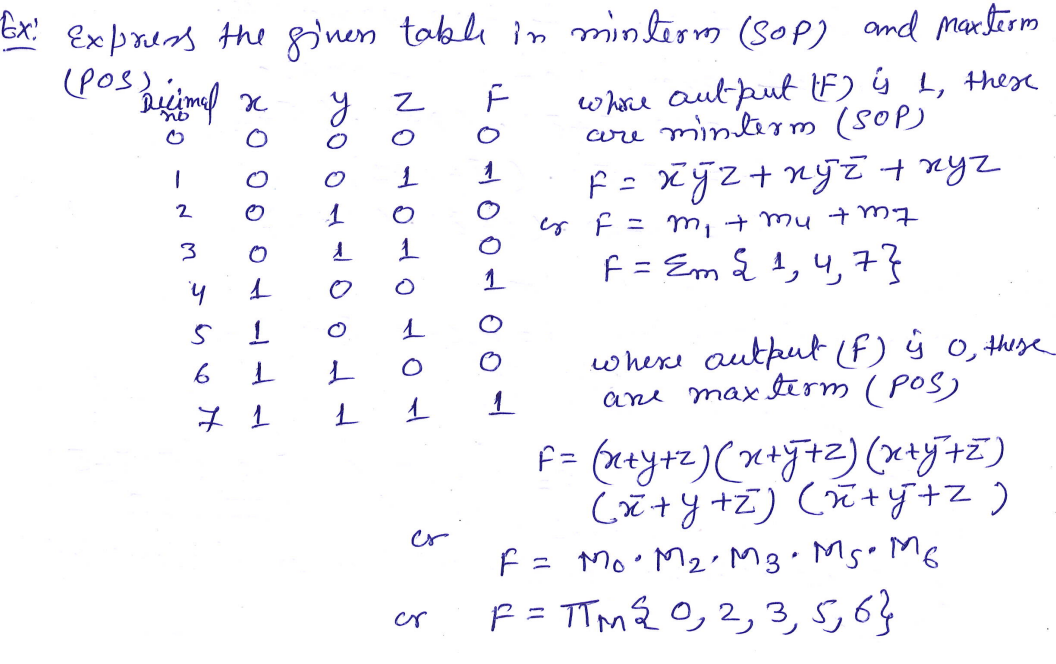 Ex: Express the given table in minterm (SOP) and maxterm
(POS).
Decimal no x y z F
0 0 0 0 0
1 0 0 1 1
2 0 1 0 0
3 0 1 1 0
4 1 0 0 1
5 1 0 1 0
6 1 1 0 0
7 1 1 1 1
where output (F) is 1, these
are minterm (SOP)
F = x̄ȳz + xȳz̄ + xyz
or F = m₁ + m₄ + m₇
F = Σm {1, 4, 7}
where output (F) is 0, these
are maxterm (POS)
F = (x+y+z)(x+ȳ+z)(x+ȳ+z̄)
(x̄+y+z̄)(x̄+ȳ+z)
or
F = M₀·M₂·M₃·M₅·M₆
or F = ΠM{0, 2, 3, 5, 6}